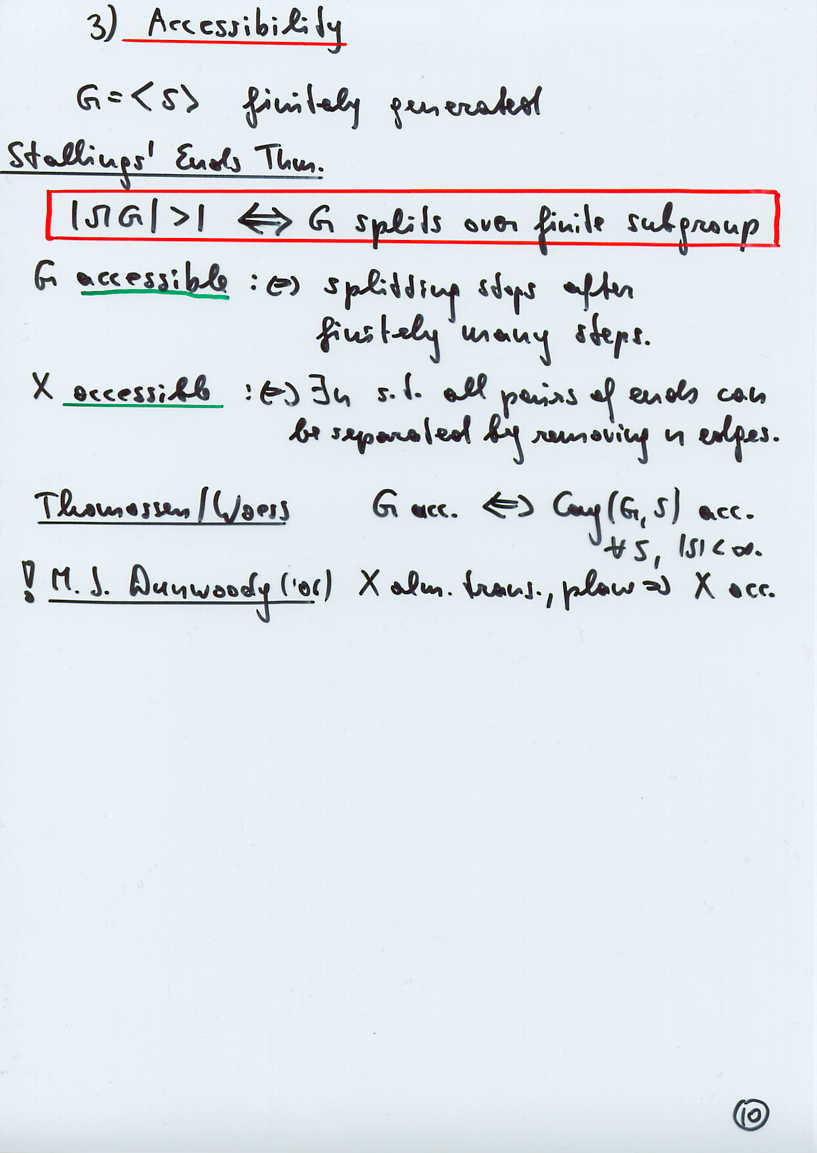 3) Accessibility
G = <S> finitely generated
Stallings' Ends Thm.
|ΩG| > 1 ⟺ G splits over finite subgroup
G accessible :⟺ splitting stops after
finitely many steps.
X accessible :⟺ ∃n s.t. all pairs of ends can
be separated by removing n edges.
Thomassen/Woess G acc. ⟺ Cay(G,S) acc.
∀ S, |S| < ∞.
! M. J. Dunwoody ('06) X alm. trans., planar ⇒ X acc.
10